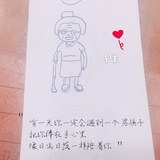 "有一天你一定会遇到一个男孩子
把你捧在手心里
像日出日落一样陪着你"